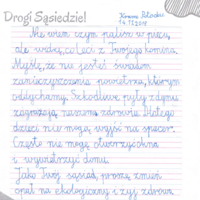 Drogi Sąsiedzie!
Nie wiem czym palisz w piecu,
ale widzę, co leci z Twojego komina.
Myślę, że nie jesteś świadom
zanieczyszczenia powietrza, którym
oddychamy. Szkodliwe pyły dymu
zagrażają naszemu zdrowiu. Dlatego
dzieci nie mogą wyjść na spacer.
Często nie mogę otworzyć okna
i wywietrzyć domu.
Jako Twój sąsiad, proszę, zmień
opał na ekologiczny i żyj zdrowo.